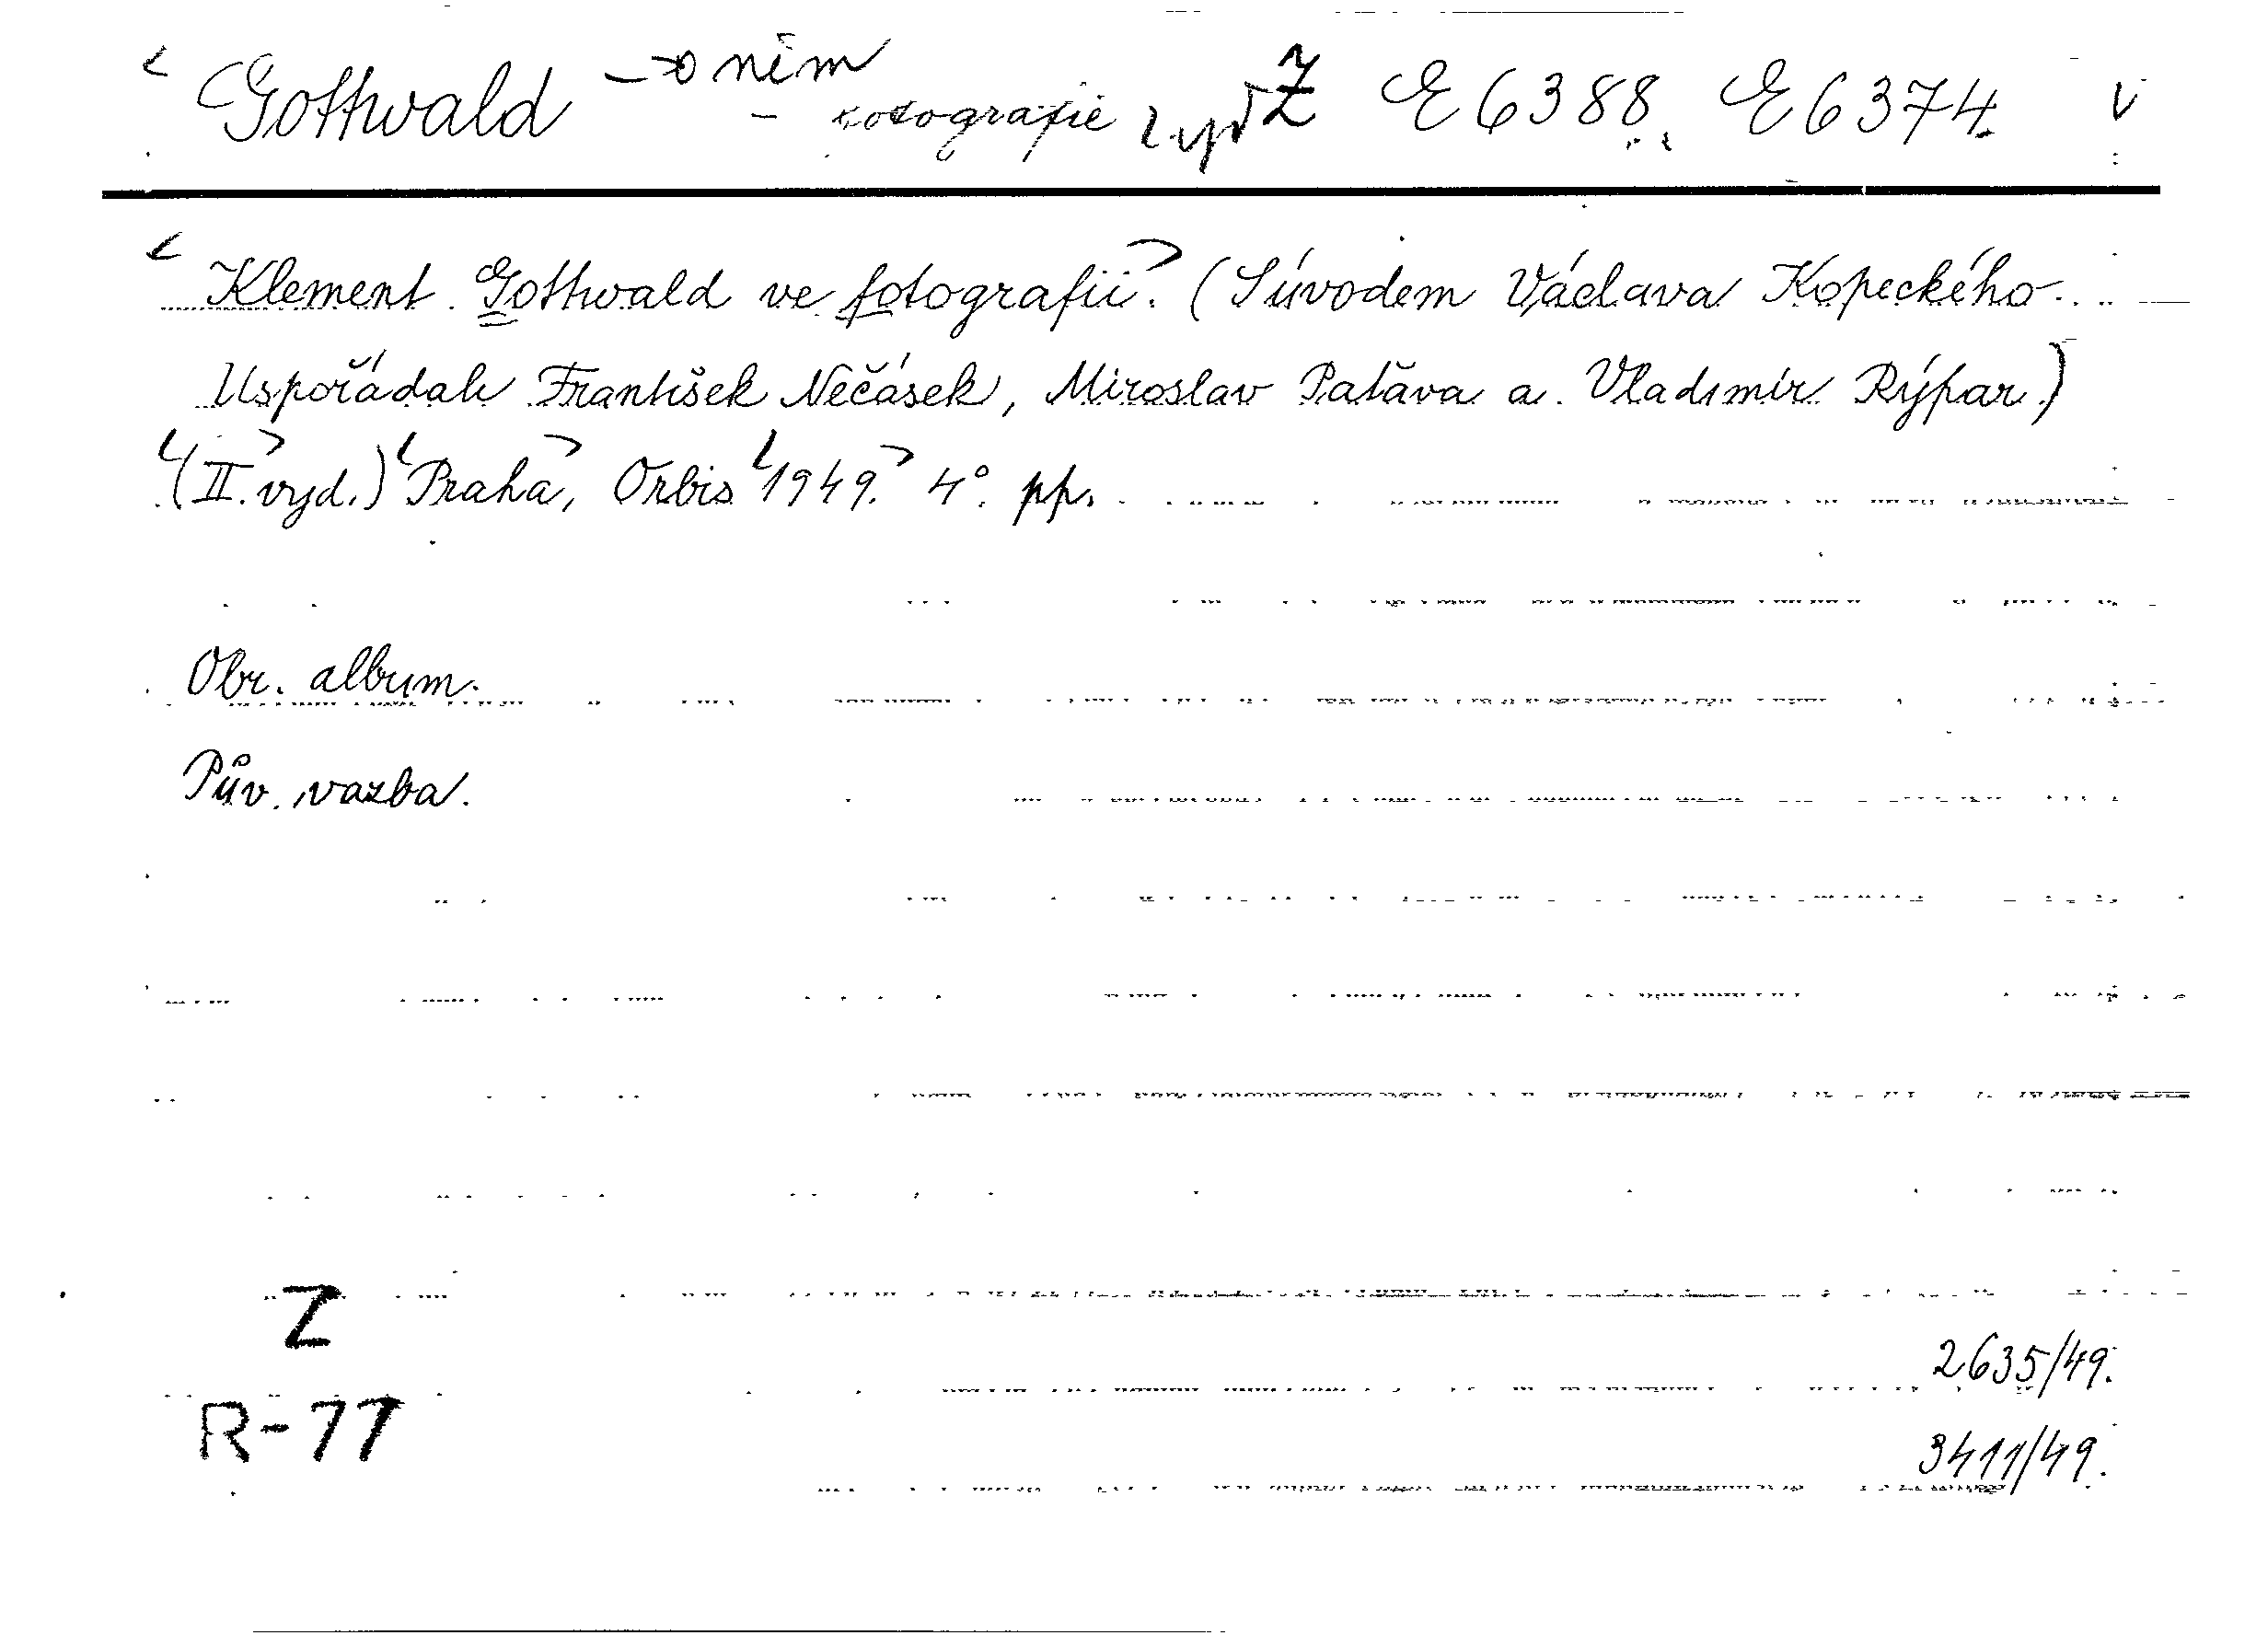 Gottwald – o něm
– fotografie 2. vyd. Z E 6388, E 6374. V
Klement Gottwald ve fotografii. (S úvodem Václava Kopeckého.
Uspořádali František Nečásek, Miroslav Paťava a Vladimír Rýpar.)
(II. vyd.) Praha, Orbis 1949. 4°. pp.
Obr. album.
Pův. vazba.
Z
2635/49.
R-77
3411/49.